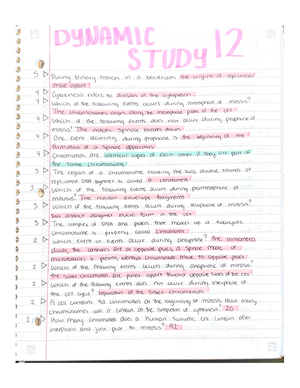 DYNAMIC
STUDY 12
5 During binary fission in a bacterium the origins of replication
move apart
4 Cytokinesis refers to division of the cytoplasm
4 Which of the following events occurs during metaphase of mitosis?
The chromosomes align along the metaphase plate of the cell
4 Which of the following events does not occur during prophase of
mitosis? The mitotic spindle breaks down
4 One event occurring during prophase is the beginning of the
formation of a spindle apparatus
4 Chromatids are identical copies of each other if they are part of
the same chromosome
3 The region of a chromosome holding the two double strands of
replicated DNA together is called a centromere
3 Which of the following events occurs during prometaphase of
mitosis? The nuclear envelope fragments
3 Which of the following events occurs during telophase of mitosis?
two distinct daughter nuclei form in the cell
3 The complex of DNA and protein that makes up a eukaryotic
chromosome is properly called chromatin
2 Which event or events occur during anaphase? the centromeres
divide, the
microtubules is present, identical chromatids move to opposite poles
2 Which of the following events occurs during anaphase of mitosis?
The sister chromatids are pulled apart toward opposite sides of the cell
2 Which of the following events does not occur during interphase of
the cell cycle? separation of the sister chromatids
2 A cell contains 40 chromatids at the beginning of mitosis. How many
chromosomes will it contain at the completion of cytokinesis? 20
2 How many chromatids does a human somatic cell contain after
interphase and just prior to mitosis? 92